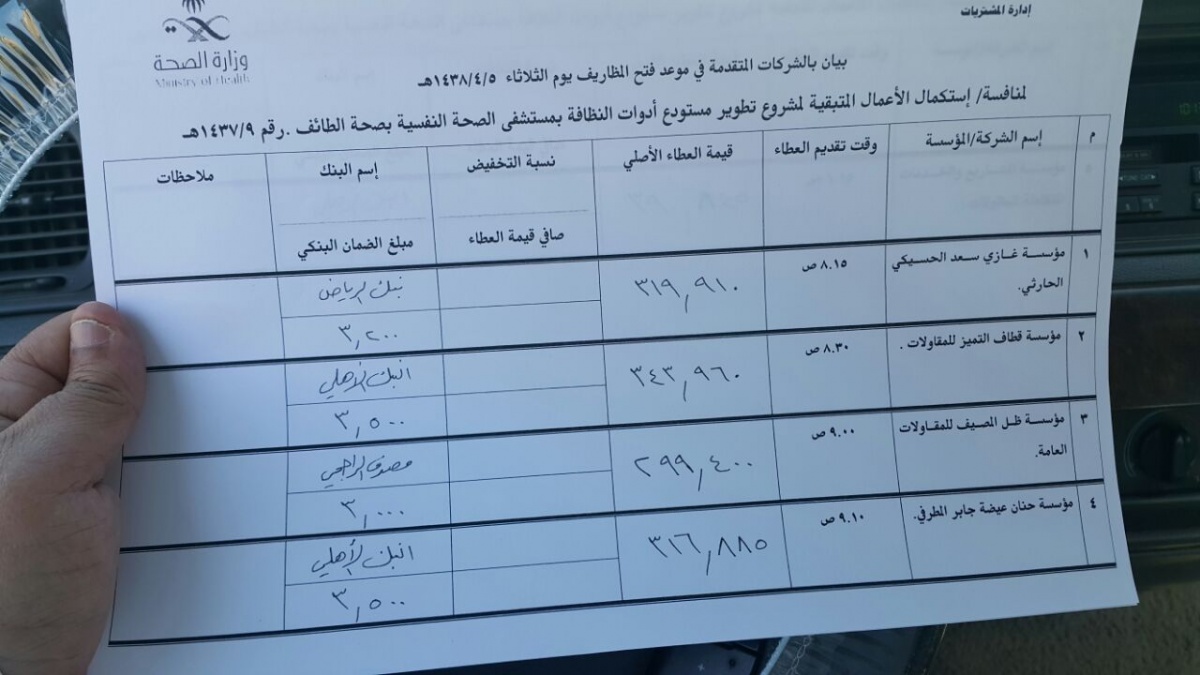 إدارة المشتريات
وزارة الصحة
Ministry of Health
بيان بالشركات المتقدمة في موعد فتح المظاريف يوم الثلاثاء ١٤٣٨/٤/٥هـ
لمنافسة/ إستكمال الأعمال المتبقية لمشروع تطوير مستودع أدوات النظافة بمستشفى الصحة النفسية بصحة الطائف .رقم ١٤٣٧/٩هـ
م إسم الشركة/المؤسسة وقت تقديم العطاء قيمة العطاء الأصلي نسبة التخفيض إسم البنك ملاحظات
صافي قيمة العطاء مبلغ الضمان البنكي
١ مؤسسة غازي سعد الحسيكي ٨.١٥ ص ٣١٩,٩١٠ بنك الرياض
الحارثي. ٣,٢٠٠
٢ مؤسسة قطاف التميز للمقاولات . ٨.٣٠ ص ٣٤٣,٩٦٠ البنك الأهلي
٣,٥٠٠
٣ مؤسسة ظل المصيف للمقاولات ٩.٠٠ ص ٢٩٩,٤٠٠ مصرف الراجحي
العامة. ٣,٠٠٠
٤ مؤسسة حنان عيضة جابر المطرفي. ٩.١٠ ص ٣١٦,٨٨٥ البنك الأهلي
٣,٥٠٠